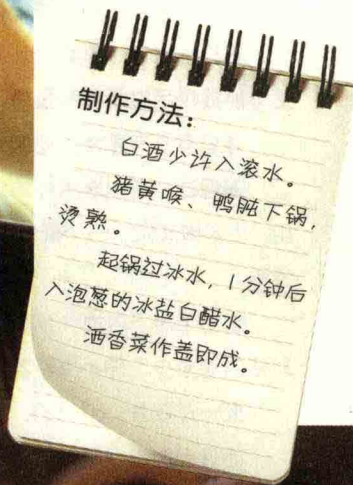 制作方法：
白酒少许入滚水。
猪黄喉、鸭胗下锅，
烫熟。
起锅过冰水，1分钟后
入泡葱的冰盐白醋水。
洒香菜作盖即成。